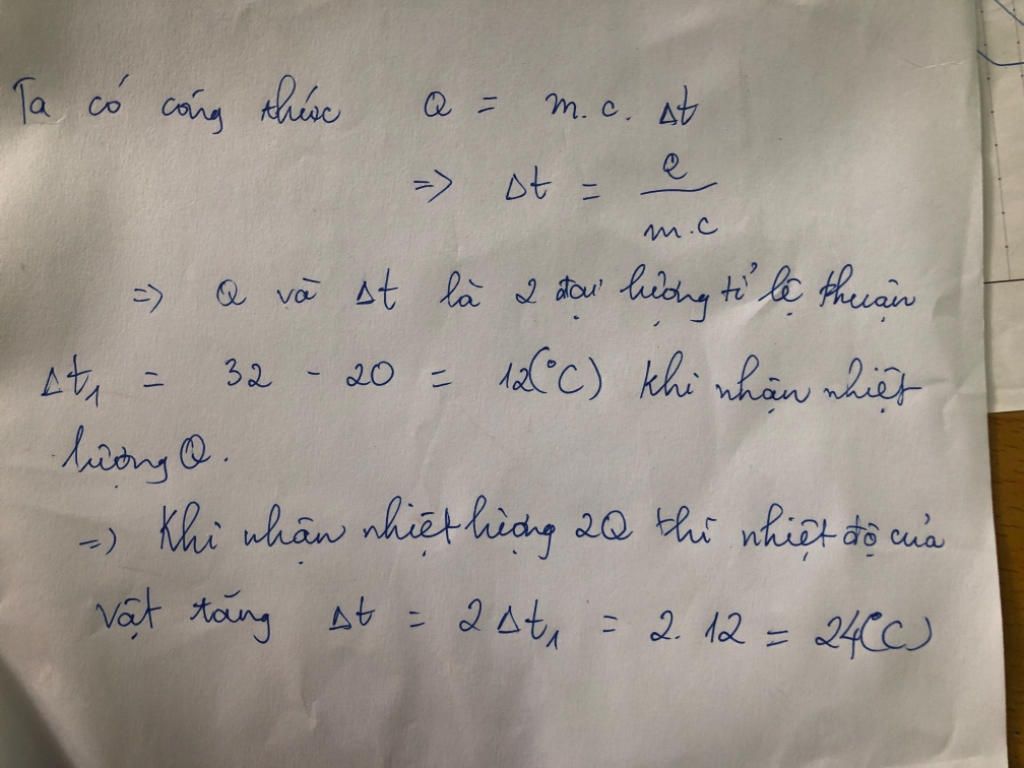 Ta có công thức Q = m.c. Δt
=> Δt = Q / m.c
=> Q và Δt là 2 đại lượng tỉ lệ thuận
Δt₁ = 32 - 20 = 12(°C) khi nhận nhiệt
lượng Q.
=> Khi nhận nhiệt lượng 2Q thì nhiệt độ của
vật tăng Δt = 2Δt₁ = 2. 12 = 24(°C)